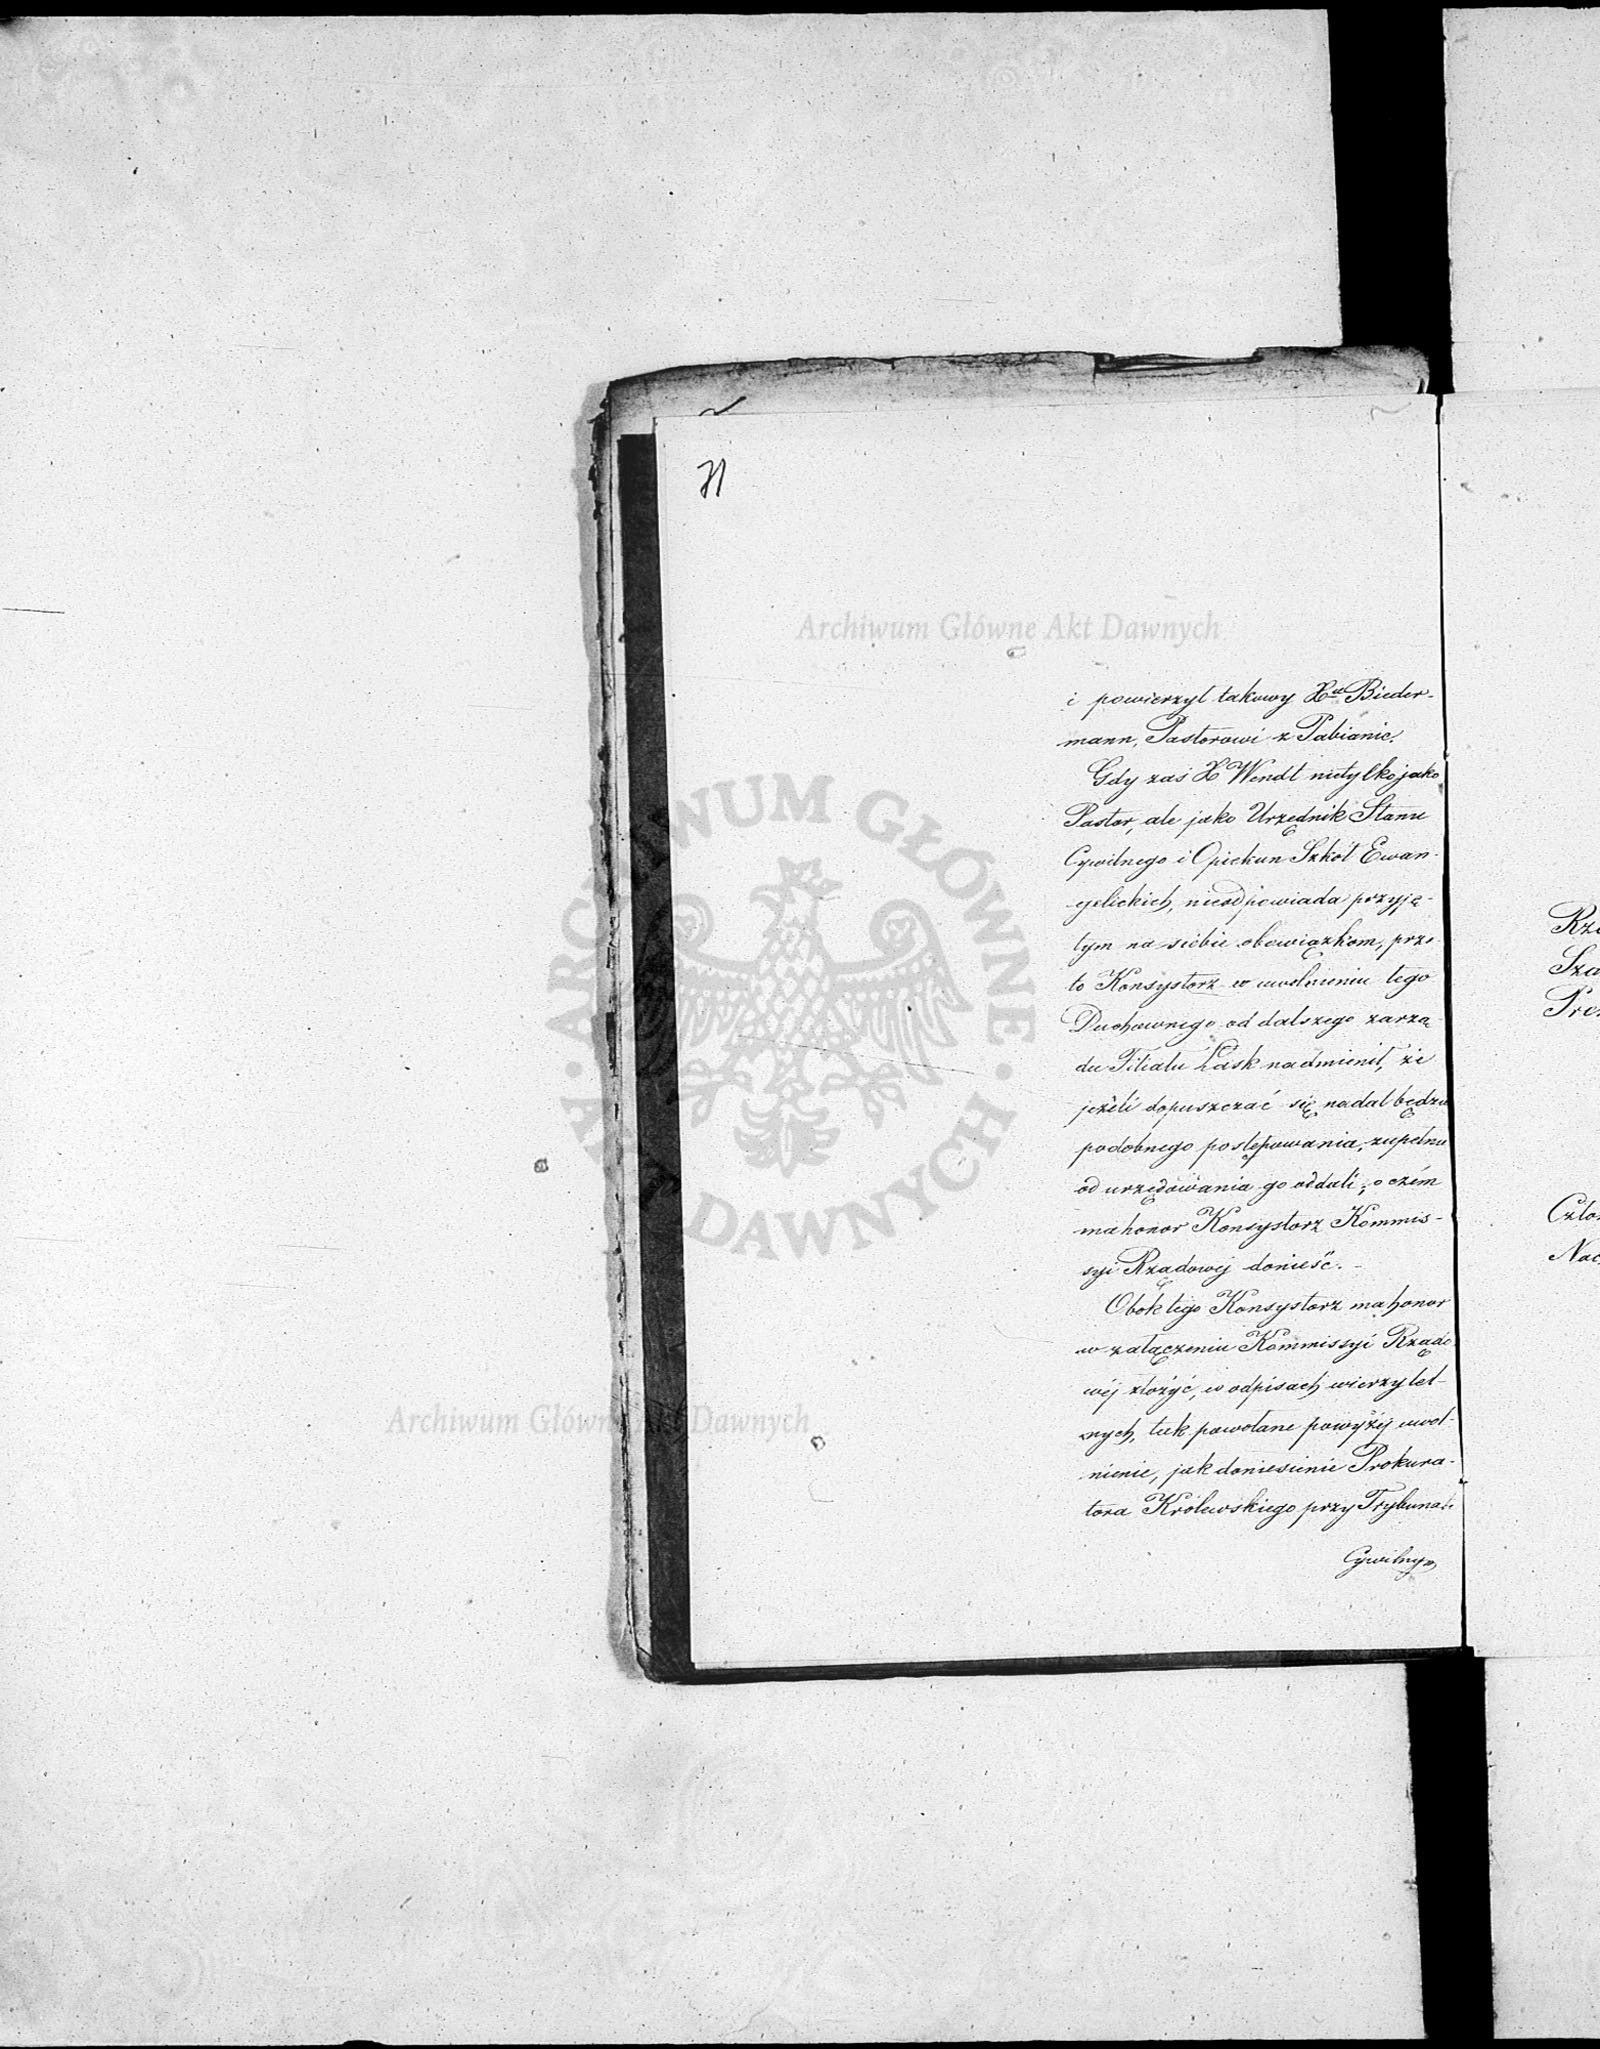 71
Archiwum Główne Akt Dawnych
i powierzył takowy X<sup>u</sup> Bieder-
mann, Pastorowi z Pabianic.
Gdy zaś X Wendt nietylko jako
Pastor, ale jako Urzędnik Stanu
Cywilnego i Opiekun Szkół Ewan-
gelickich, nieodpowiada przyję-
tym na siebie obowiązkom, prze-
to Konsystorz w uwolnieniu tego
Duchownego od dalszego zarzą-
du Filiału Łask nadmienił, że
jeżeli dopuszczać się nadal będzie
podobnego postępowania, zupełnie
od urzędowania go oddali; o czém
ma honor Konsystorz Kommis-
syi Rządowej donieść. -
Obok tego Konsystorz ma honor
w załączeniu Kommissyi Rządo-
wéj złożyć, w odpisach wierzytel-
nych, tak powołane powyżéj uwol-
nienie, jak doniesienie Prokura-
tora Królewskiego przy Trybunale
Cywilnym
Archiwum Główne Akt Dawnych
ARCHIWUM GŁÓWNE AKT DAWNYCH
Rzą
Sza
Pre
Czło
Nac